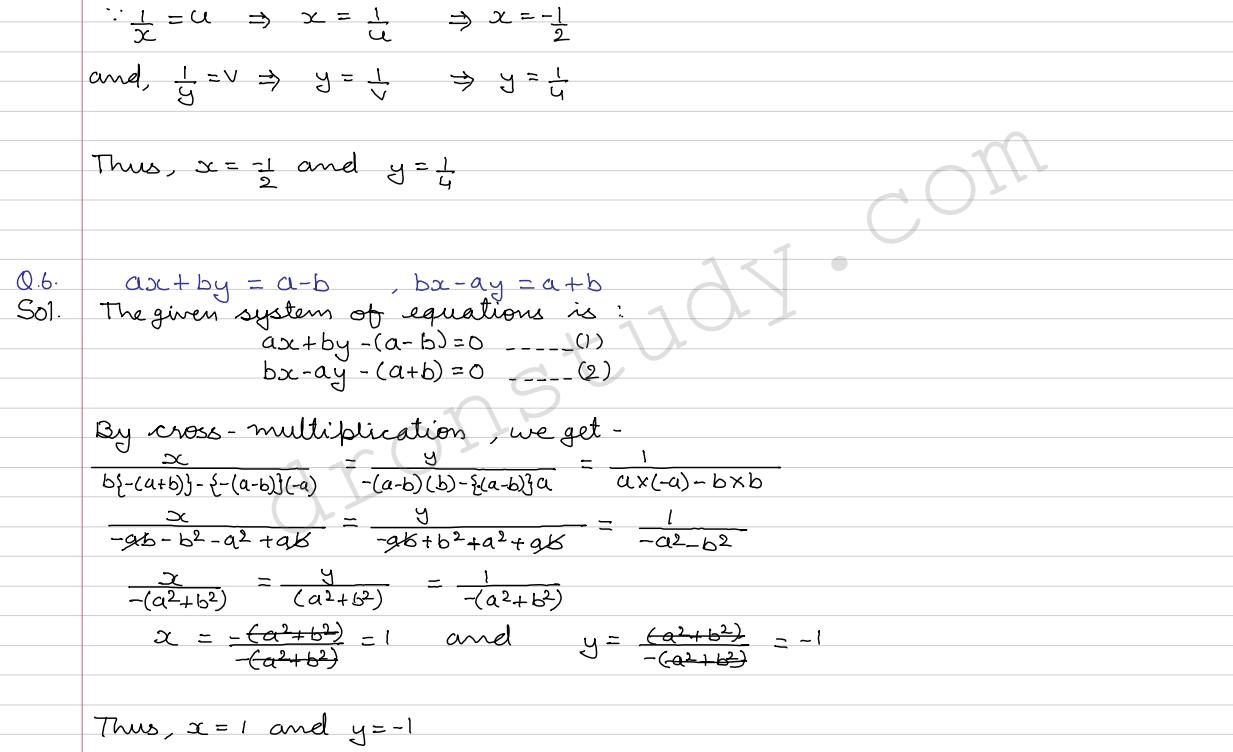 ∵ 1/x = u ⇒ x = 1/u ⇒ x = -1/2
and, 1/y = v ⇒ y = 1/v ⇒ y = 1/4
Thus, x = -1/2 and y = 1/4
Q.6. ax+by = a-b , bx-ay = a+b
Sol. The given system of equations is :
ax+by -(a-b)=0 -----(1)
bx-ay -(a+b)=0 -----(2)
By cross-multiplication, we get -
x/(b{-(a+b)}-{-(a-b)}(-a)) = y/(-(a-b)(b)-{-(a-b)}a) = 1/(a×(-a)-b×b)
x/(-ab-b²-a²+ab) = y/(-ab+b²+a²+ab) = 1/(-a²-b²)
x/(-(a²+b²)) = y/((a²+b²)) = 1/(-(a²+b²))
x = -(a²+b²)/-(a²+b²) = 1 and y = (a²+b²)/-(a²+b²) = -1
Thus, x = 1 and y = -1
dronstudy.com